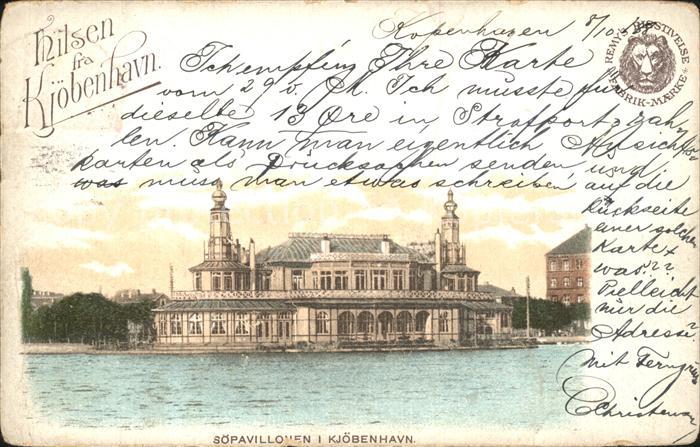 Hilsen
fra
Kjöbenhavn.
REMY'S RISSTIVELSE
FABRIK-MÆRKE
Kopenhagen 8/10
Ich empfing Ihre Karte
vom 29 v. M. Ich musste für
dieselbe 13 Øre in Strafporto zah
len. Kann man eigentlich Ansichts
karten als Drucksachen senden, und
was muss man etwas schreiben auf die
Rückseite
einer solchen
Karte
was??
Vielleicht
nur die
Adresse
Mit Ferngruss
SÖPAVILLONEN I KJÖBENHAVN.